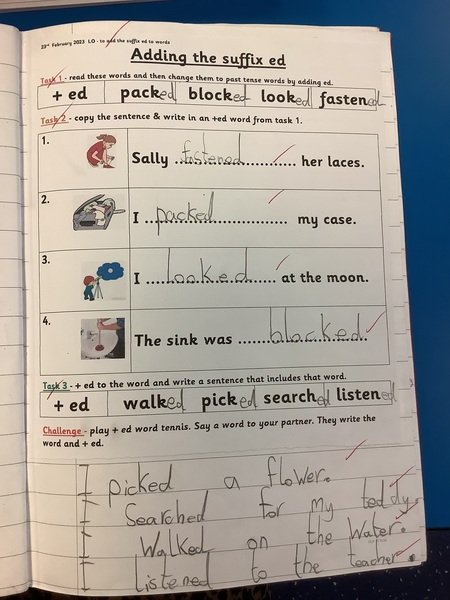 23rd February 2023 LO - to add the suffix ed to words
Adding the suffix ed
Task 1 - read these words and then change them to past tense words by adding ed.
+ ed packed blocked looked fastened
Task 2 - copy the sentence & write in an +ed word from task 1.
1.
Sally ..fastened.......... her laces.
2.
I ..packed.......... my case.
3.
I ...looked...... at the moon.
4.
The sink was .......blocked..
Task 3 - + ed to the word and write a sentence that includes that word.
+ ed walked picked searched listened
Challenge - play + ed word tennis. Say a word to your partner. They write the
word and + ed.
I picked a flower.
I Searched for my teddy.
I Walked on the Water.
I listened to the teacher.